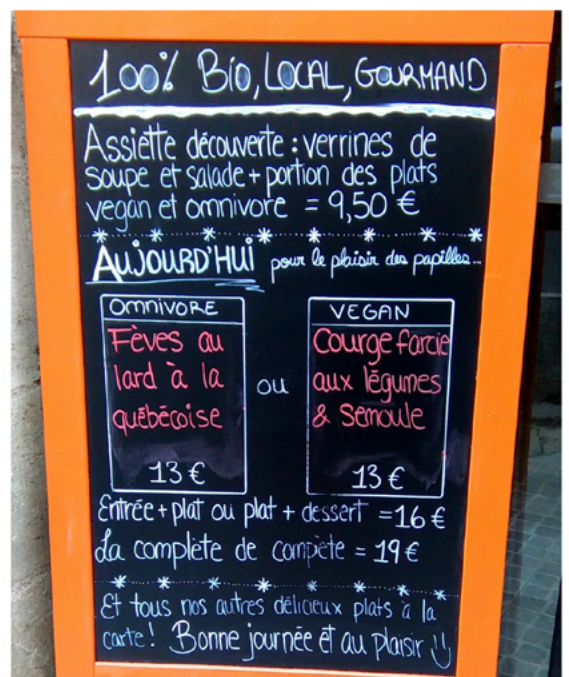 100% Bio, LOCAL, GOURMAND
Assiette découverte : verrines de
soupe et salade + portion des plats
vegan et omnivore = 9,50 €
AUJOURD'HUI pour le plaisir des papilles...
OMNIVORE
Fèves au
lard à la
québécoise
13 €
ou
VEGAN
Courge farcie
aux légumes
& Semoule
13 €
Entrée + plat ou plat + dessert = 16 €
La complète de compète = 19 €
Et tous nos autres délicieux plats à la
carte ! Bonne journée et au plaisir